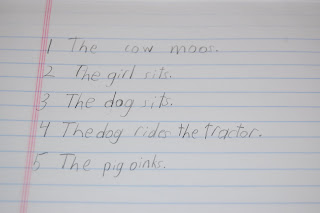 1 The cow moos.
2 The girl sits.
3 The dog sits.
4 The dog rides the tractor.
5 The pig oinks.